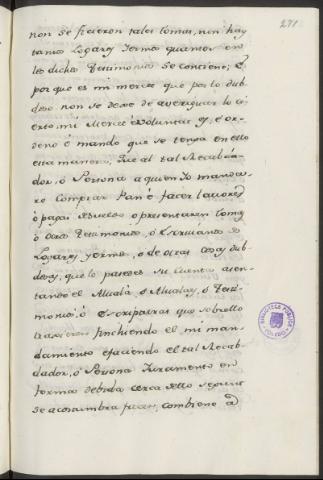 271
non se ficieron tales tomas, nin hay
tantos Logares Yermos quantos en
los dichos Testimonios se contiene; E
por que es mi merced que por lo dub-
doso non se dexe de averiguar lo ci-
erto mi Merced é Voluntat es, é or-
deno é mando que se tenga en ello
esta manera, Que al tal Recabda-
dor, ó Persona a quien Yo mandare
Comprar Pan é facer labores
ó pagar sueldo, ó presentaren tomas
ó otros Testimonios, ó Escrituras de
Logares yermos, ó de otras cosas dub-
dosas, que lo pasedes en Cuenta asen-
tando el Alvalá, ó Alvalaes, ó Testi-
monio, ó Escripturas que sobrello
traxieren finchiendo el mi man-
damiento efaciendo el tal Recab-
dador, ó Persona Juramento en
forma debida cerca dello segunt
se acostumbra facer, combiene á
BIBLIOTECA PUBLICA
TOLEDO